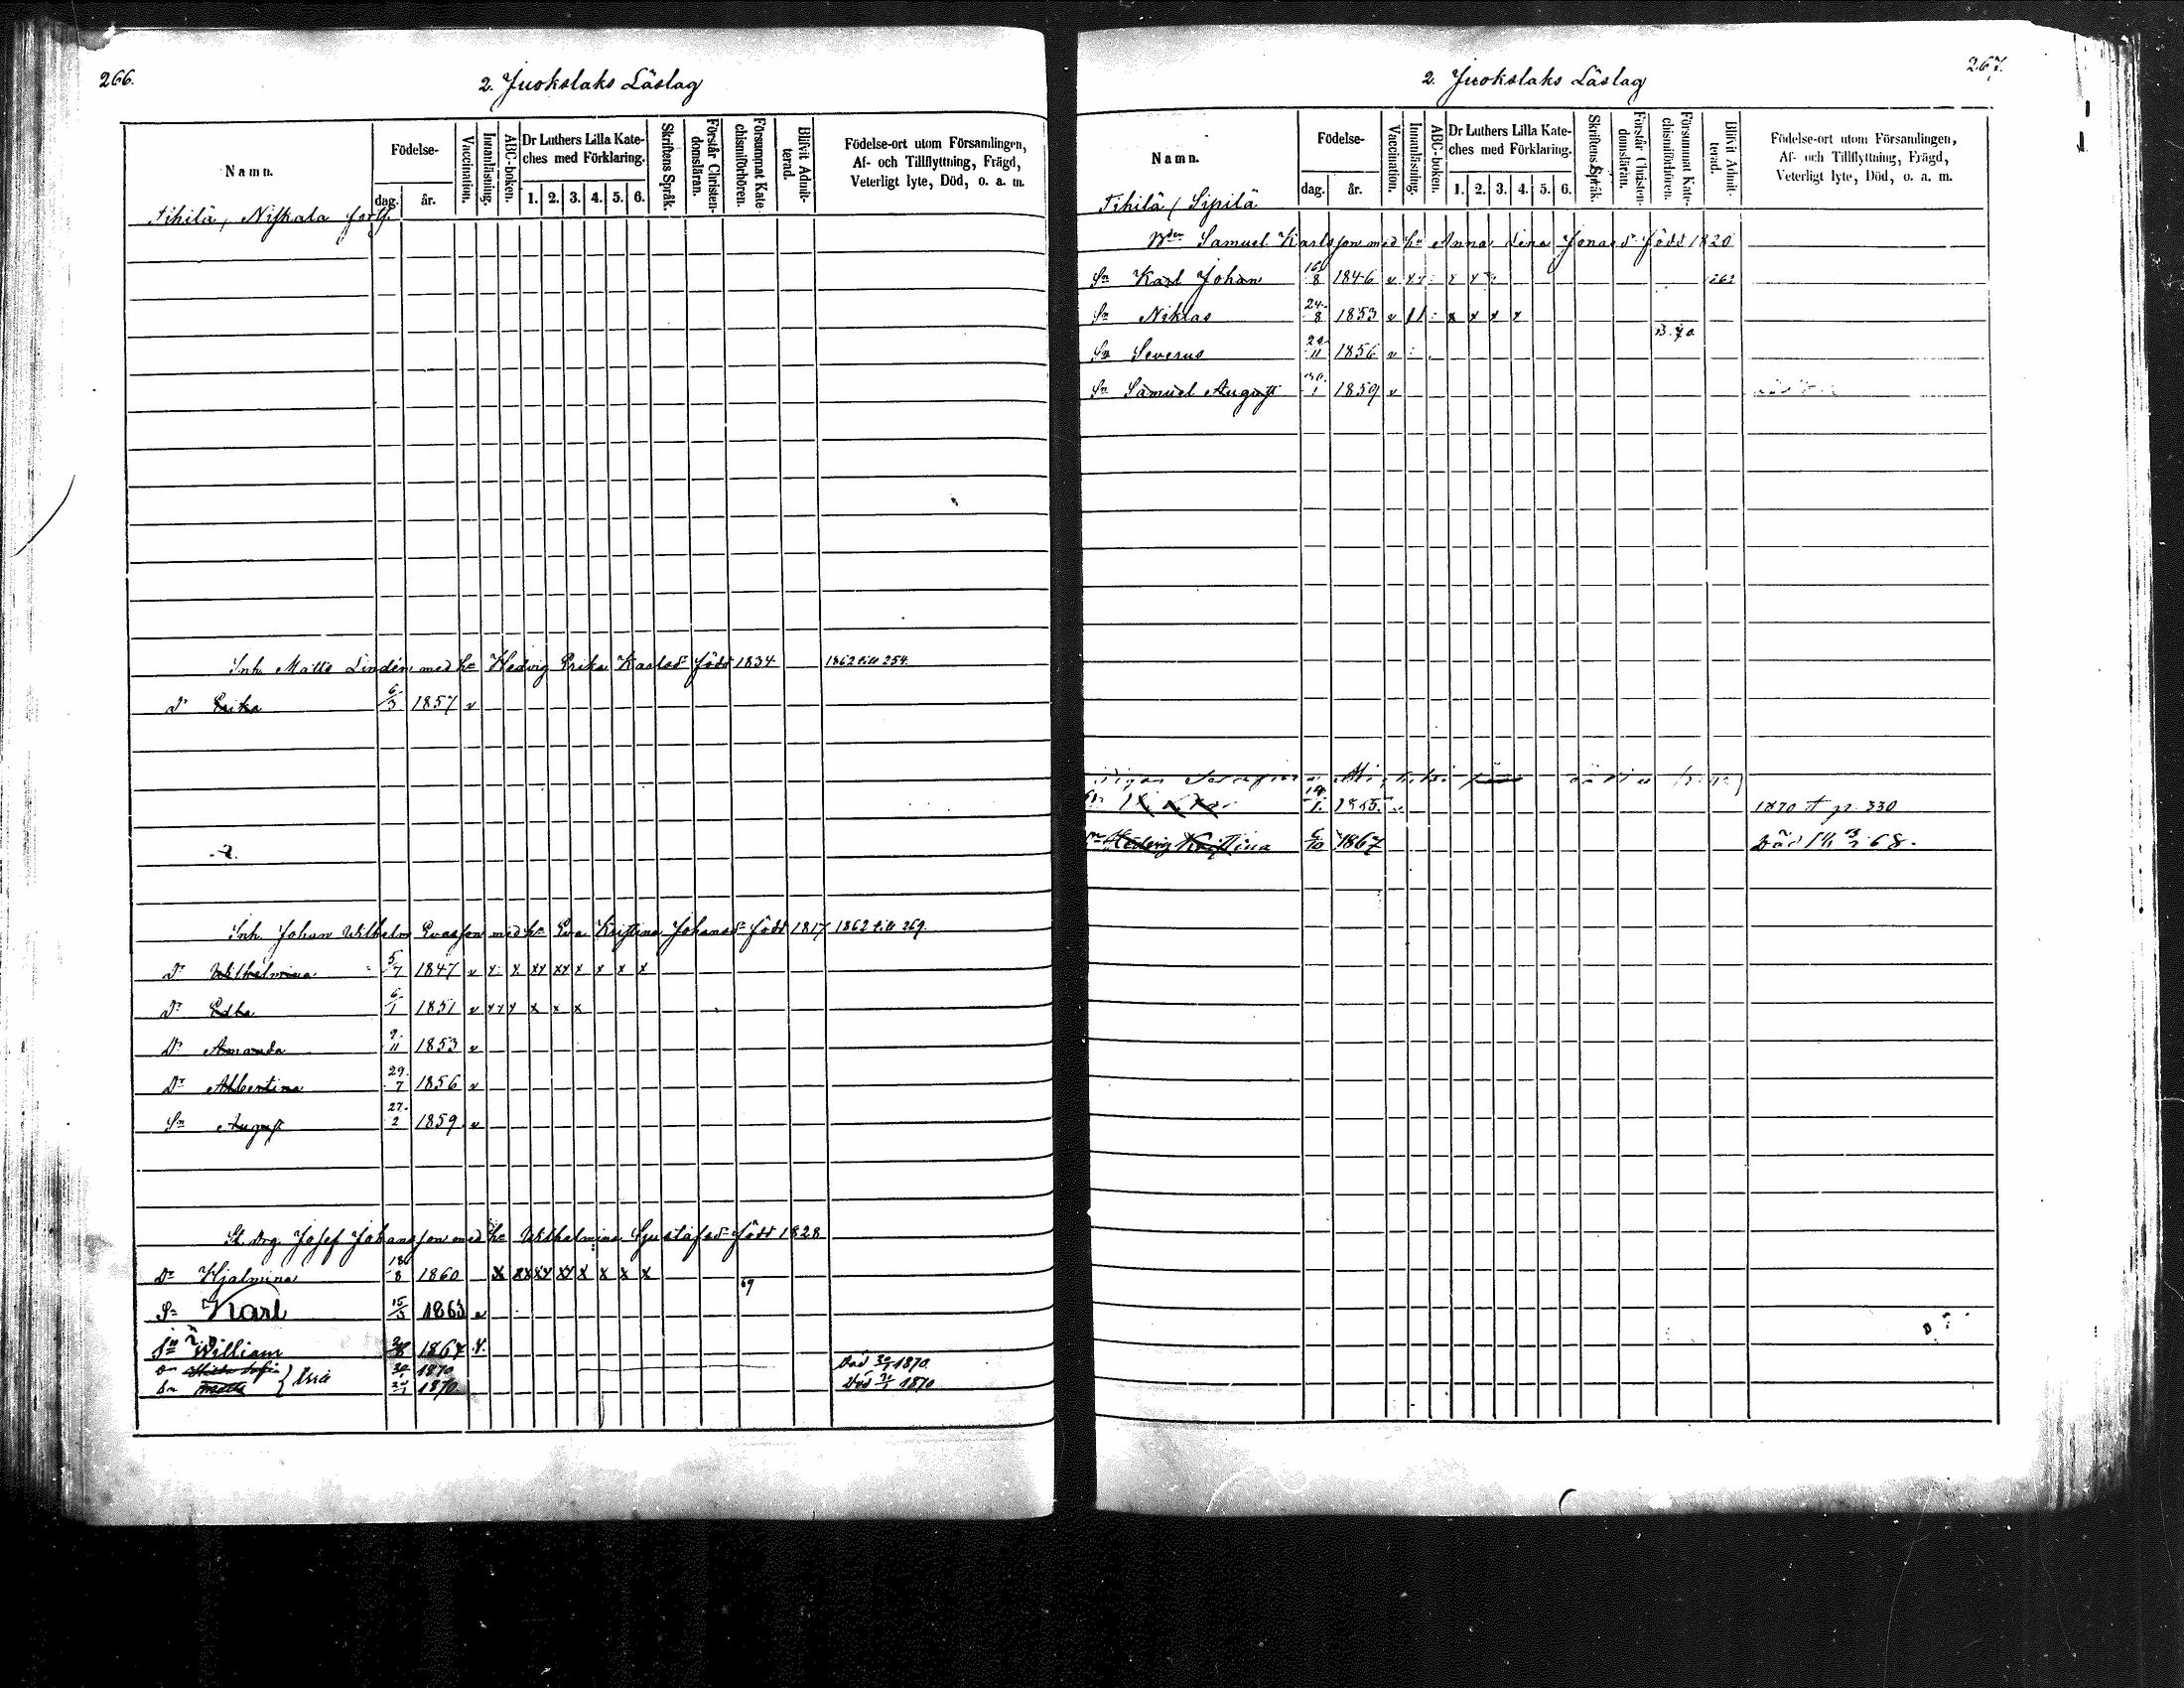 266.
2. Juokslaks Läslag
Namn.
Födelse-
dag. år.
Vaccination.
Innanläsning.
ABC-boken.
Dr Luthers Lilla Kate-
ches med Förklaring.
1. 2. 3. 4. 5. 6.
Skriftens Språk.
Förstår Christen-
domsläran.
Försummat Kate-
chismiförhören.
Blifvit Admit-
terad.
Födelse-ort utom Församlingen,
Af- och Tillflyttning, Frägd,
Veterligt lyte, Död, o. a. m.
Tihilä, Niskala forts.
Inh. Matts Lindén med h. Hedvig Erika Karlsd. född 1834 1862 till 254.
Dr Erika 6/3 1857 v
Inh. Johan Wilhelm Evasson med h. Eva Kristina Johansd. född 1817 1862 till 269.
Dr Wilhelmina 5/7 1847 v x x xx xx x x x x
Dr Edla 6/1 1851 v x x x x x x
Dr Amanda 9/11 1853 v
Dr Albertina 29/7 1856 v
Sn August 27/2 1859 v
St. drg. Josef Johansson med h. Wilhelmina Gustafsd. född 1828
Dr Hjalmina 18/8 1860 x xx xx xx x x x x
69
Sn Karl 15/3 1863 v
Sn William 1867 v.
Dn Sofia 1870 Död 30/1 1870.
Dn 1870 Död 1870
267.
2. Juokslaks Läslag
Namn.
Födelse-
dag. år.
Vaccination.
Innanläsning.
ABC-boken.
Dr Luthers Lilla Kate-
ches med Förklaring.
1. 2. 3. 4. 5. 6.
Skriftens Språk.
Förstår Christen-
domsläran.
Försummat Kate-
chismiförhören.
Blifvit Admit-
terad.
Födelse-ort utom Församlingen,
Af- och Tillflyttning, Frägd,
Veterligt lyte, Död, o. a. m.
Tihilä / Sipilä
Bden Samuel Karlsson med h. Anna Lena Jonasd. född 1820
Sn Karl Johan 16/8 1846 v x x x x
Sn Niklas 24/8 1853 v x x x x
Sn Severus 11 1856 v
Sn Samuel August 1 1859 v
1. 1855. 1870 t p. 330
Hedvig Kristina 6/10 1867 Död 68.